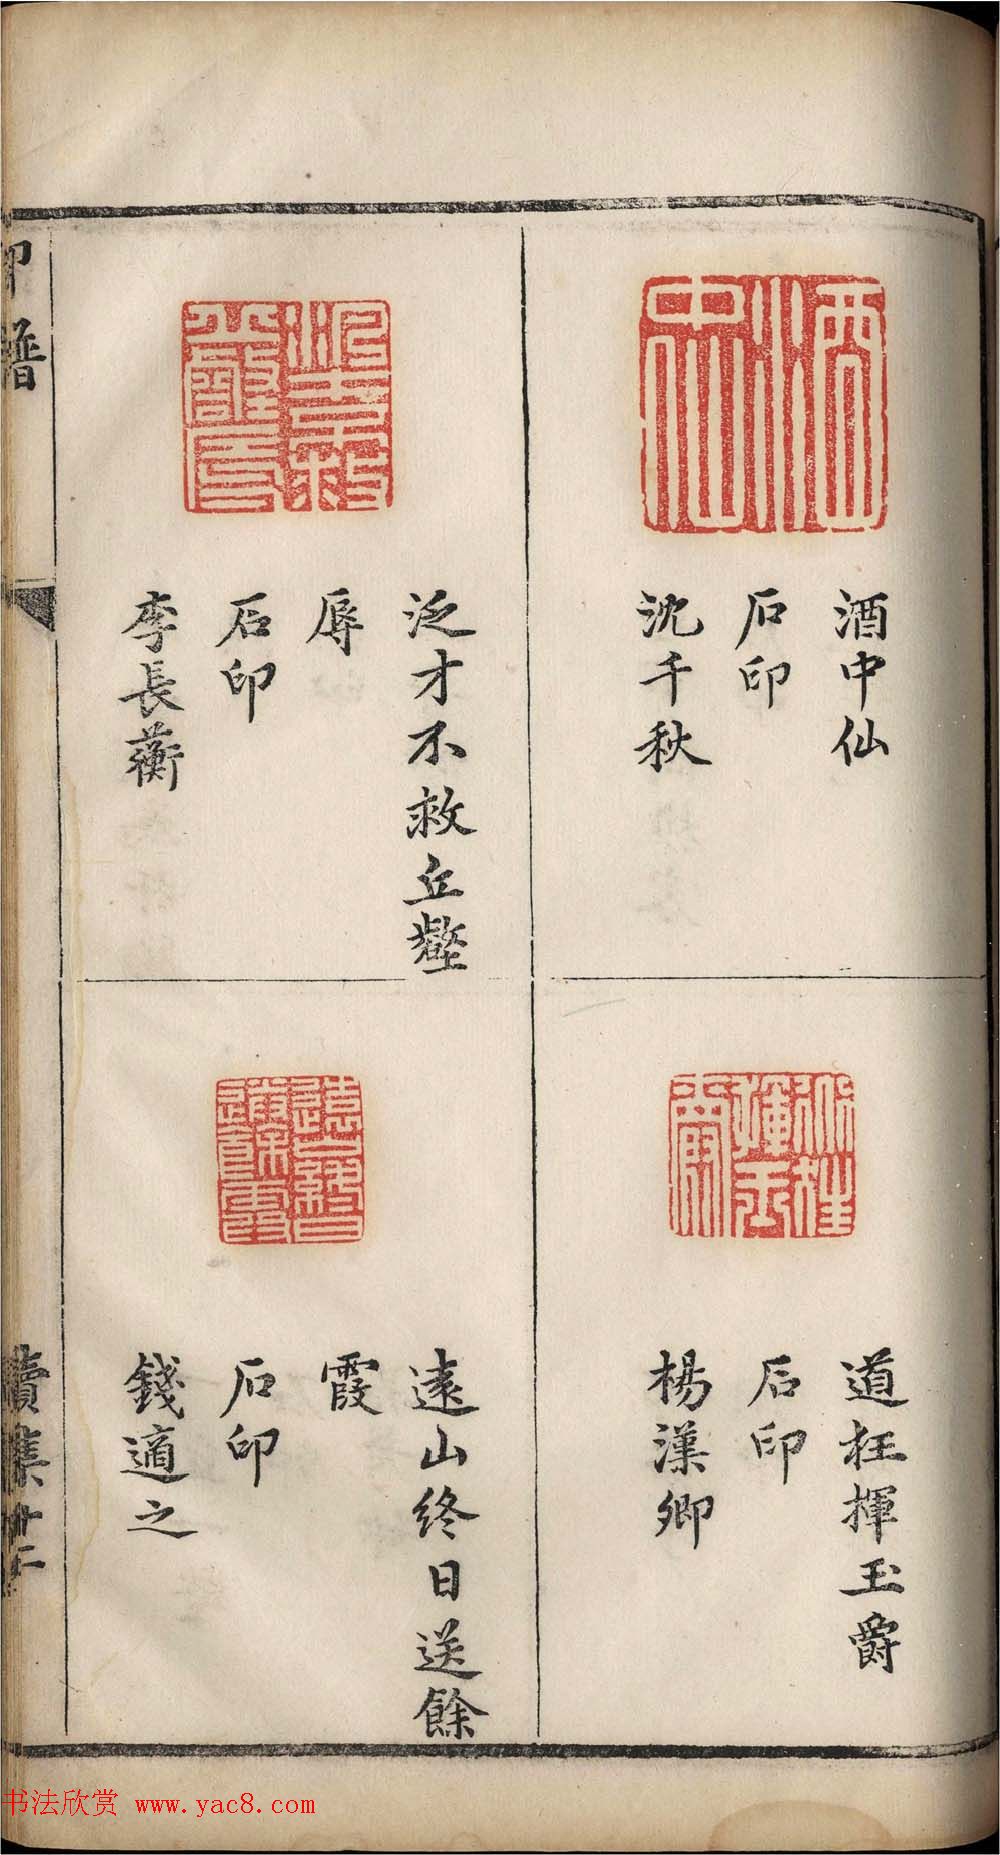 酒中仙
石印
沈千秋
道在揮玉爵
石印
楊漢卿
泛才不救丘壑
辱
石印
李長蘅
遠山終日送餘
霞
石印
錢適之
印譜
續集 廿二
书法欣赏 www.yac8.com